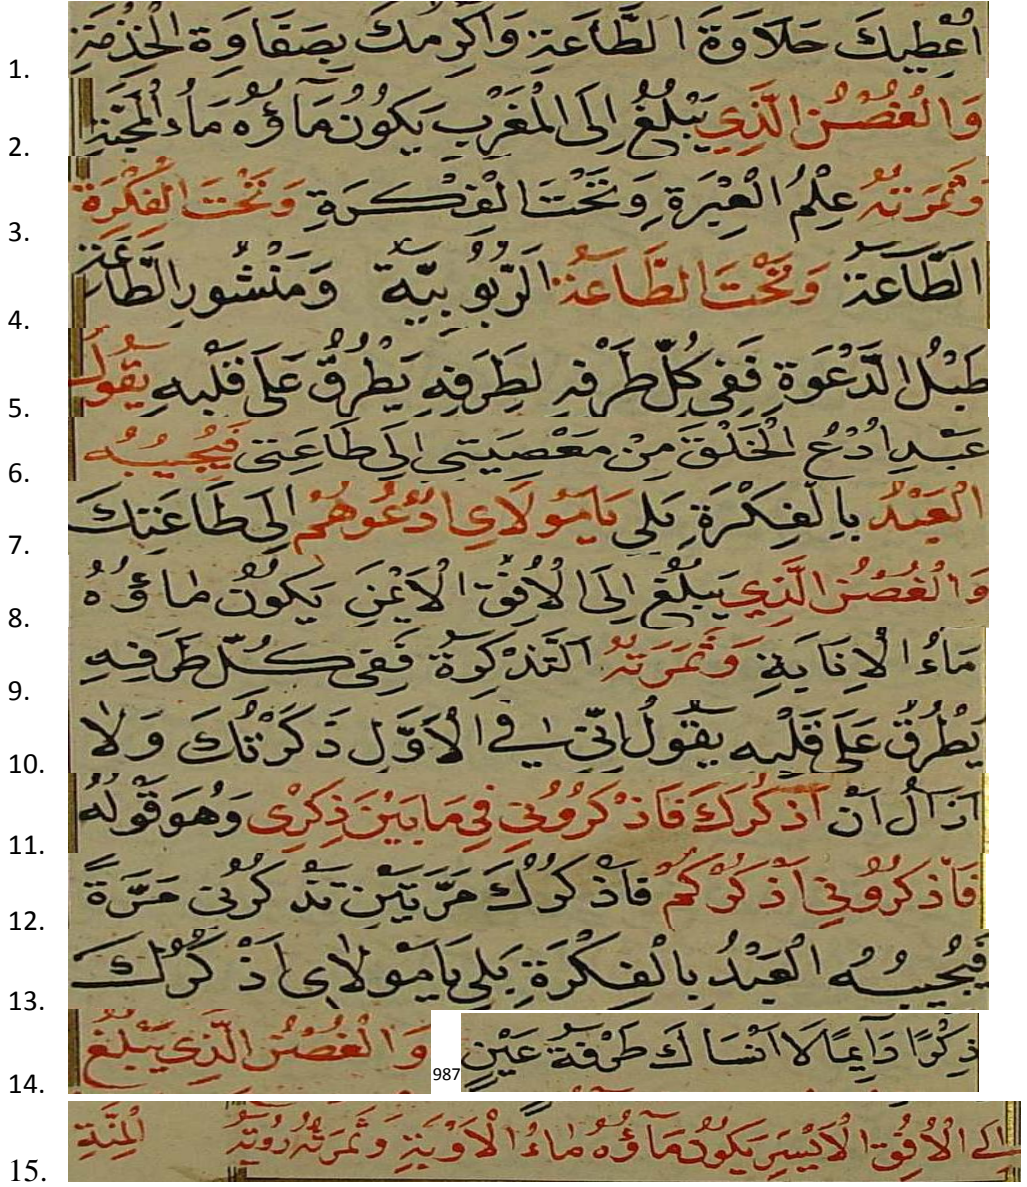 1. اُعْطِيكَ حَلَاوَةَ الطَّاعَةِ وَاُكْرِمُكَ بِصَفَاوَةِ الْخِدْمَةِ
2. وَالْغُصْنُ الَّذِي يَبْلُغُ اِلَى الْمَغْرِبِ يَكُونُ مَآؤُهُ مَاءُ الْمَحَبَّةِ
3. وَثَمَرَتُهُ عِلْمُ الْعِبْرَةِ وَتَحْتَ الْفِكْرَةِ وَتَحْتَ الْفِكْرَةِ
4. الطَّاعَةُ وَتَحْتَ الطَّاعَةِ الرُّبُوبِيَّةُ وَمَنْشُورِ الطَّاعَةِ
5. طَبْلُ الدَّعْوَةِ فَفِي كُلِّ طَرْفَةٍ لِطَرَفِهِ يَطْرُقُ عَلَى قَلْبِهِ يَقُولُ
6. عَبْدِ ادْعُ الْخَلْقَ مِنْ مَعْصِيَتِي اِلَى طَاعَتِي فَيُجِيبُهُ
7. الْعَبْدُ بِالْفِكْرَةِ بَلِي يَامَوْلَايَ اَدْعُوهُمْ اِلَى طَاعَتِكَ
8. وَالْغُصْنُ الَّذِي يَبْلُغُ اِلَى الْاُفُقِ الْاَيْمَنِ يَكُونُ مَاؤُهُ
9. مَاءُ الْاِنَابَةِ وَثَمَرَتُهُ التَّذْكِرَةُ فَفِي كُلِّ طَرْفِهِ
10. يَطْرُقُ عَلَى قَلْبِهِ يَقُولُ اِنِّي فِي الْاَوَّلِ ذَكَرْتُكَ وَلَا
11. اَزَالُ اَنْ اَذْكُرَكَ فَاذْكُرُونِي فِي مَابَيْنَ ذِكْرِي وَهُوَ قَوْلُهُ
12. فَاذْكُرُونِي اَذْكُرْكُمْ فَاَذْكُرُكَ مَرَّتَيْنِ تَذْكُرُنِي مَرَّةً
13. فَيُجِيبُهُ الْعَبْدُ بِالْفِكْرَةِ بَلِي يَامَوْلَايَ اَذْكُرُكَ
14. ذِكْرًا دَآيِمًا لَا اَنْسَاكَ طَرْفَةَ عَيْنٍ 987 وَالْغُصْنُ الَّذِي يَبْلُغُ
15. اِلَى الْاُفُقِ الْاَيْسَرِ يَكُونُ مَآؤُهُ مَاءُ الْاَوْبَةِ وَثَمَرَتُهُ رُوْيَةُ الْمِنَّةِ